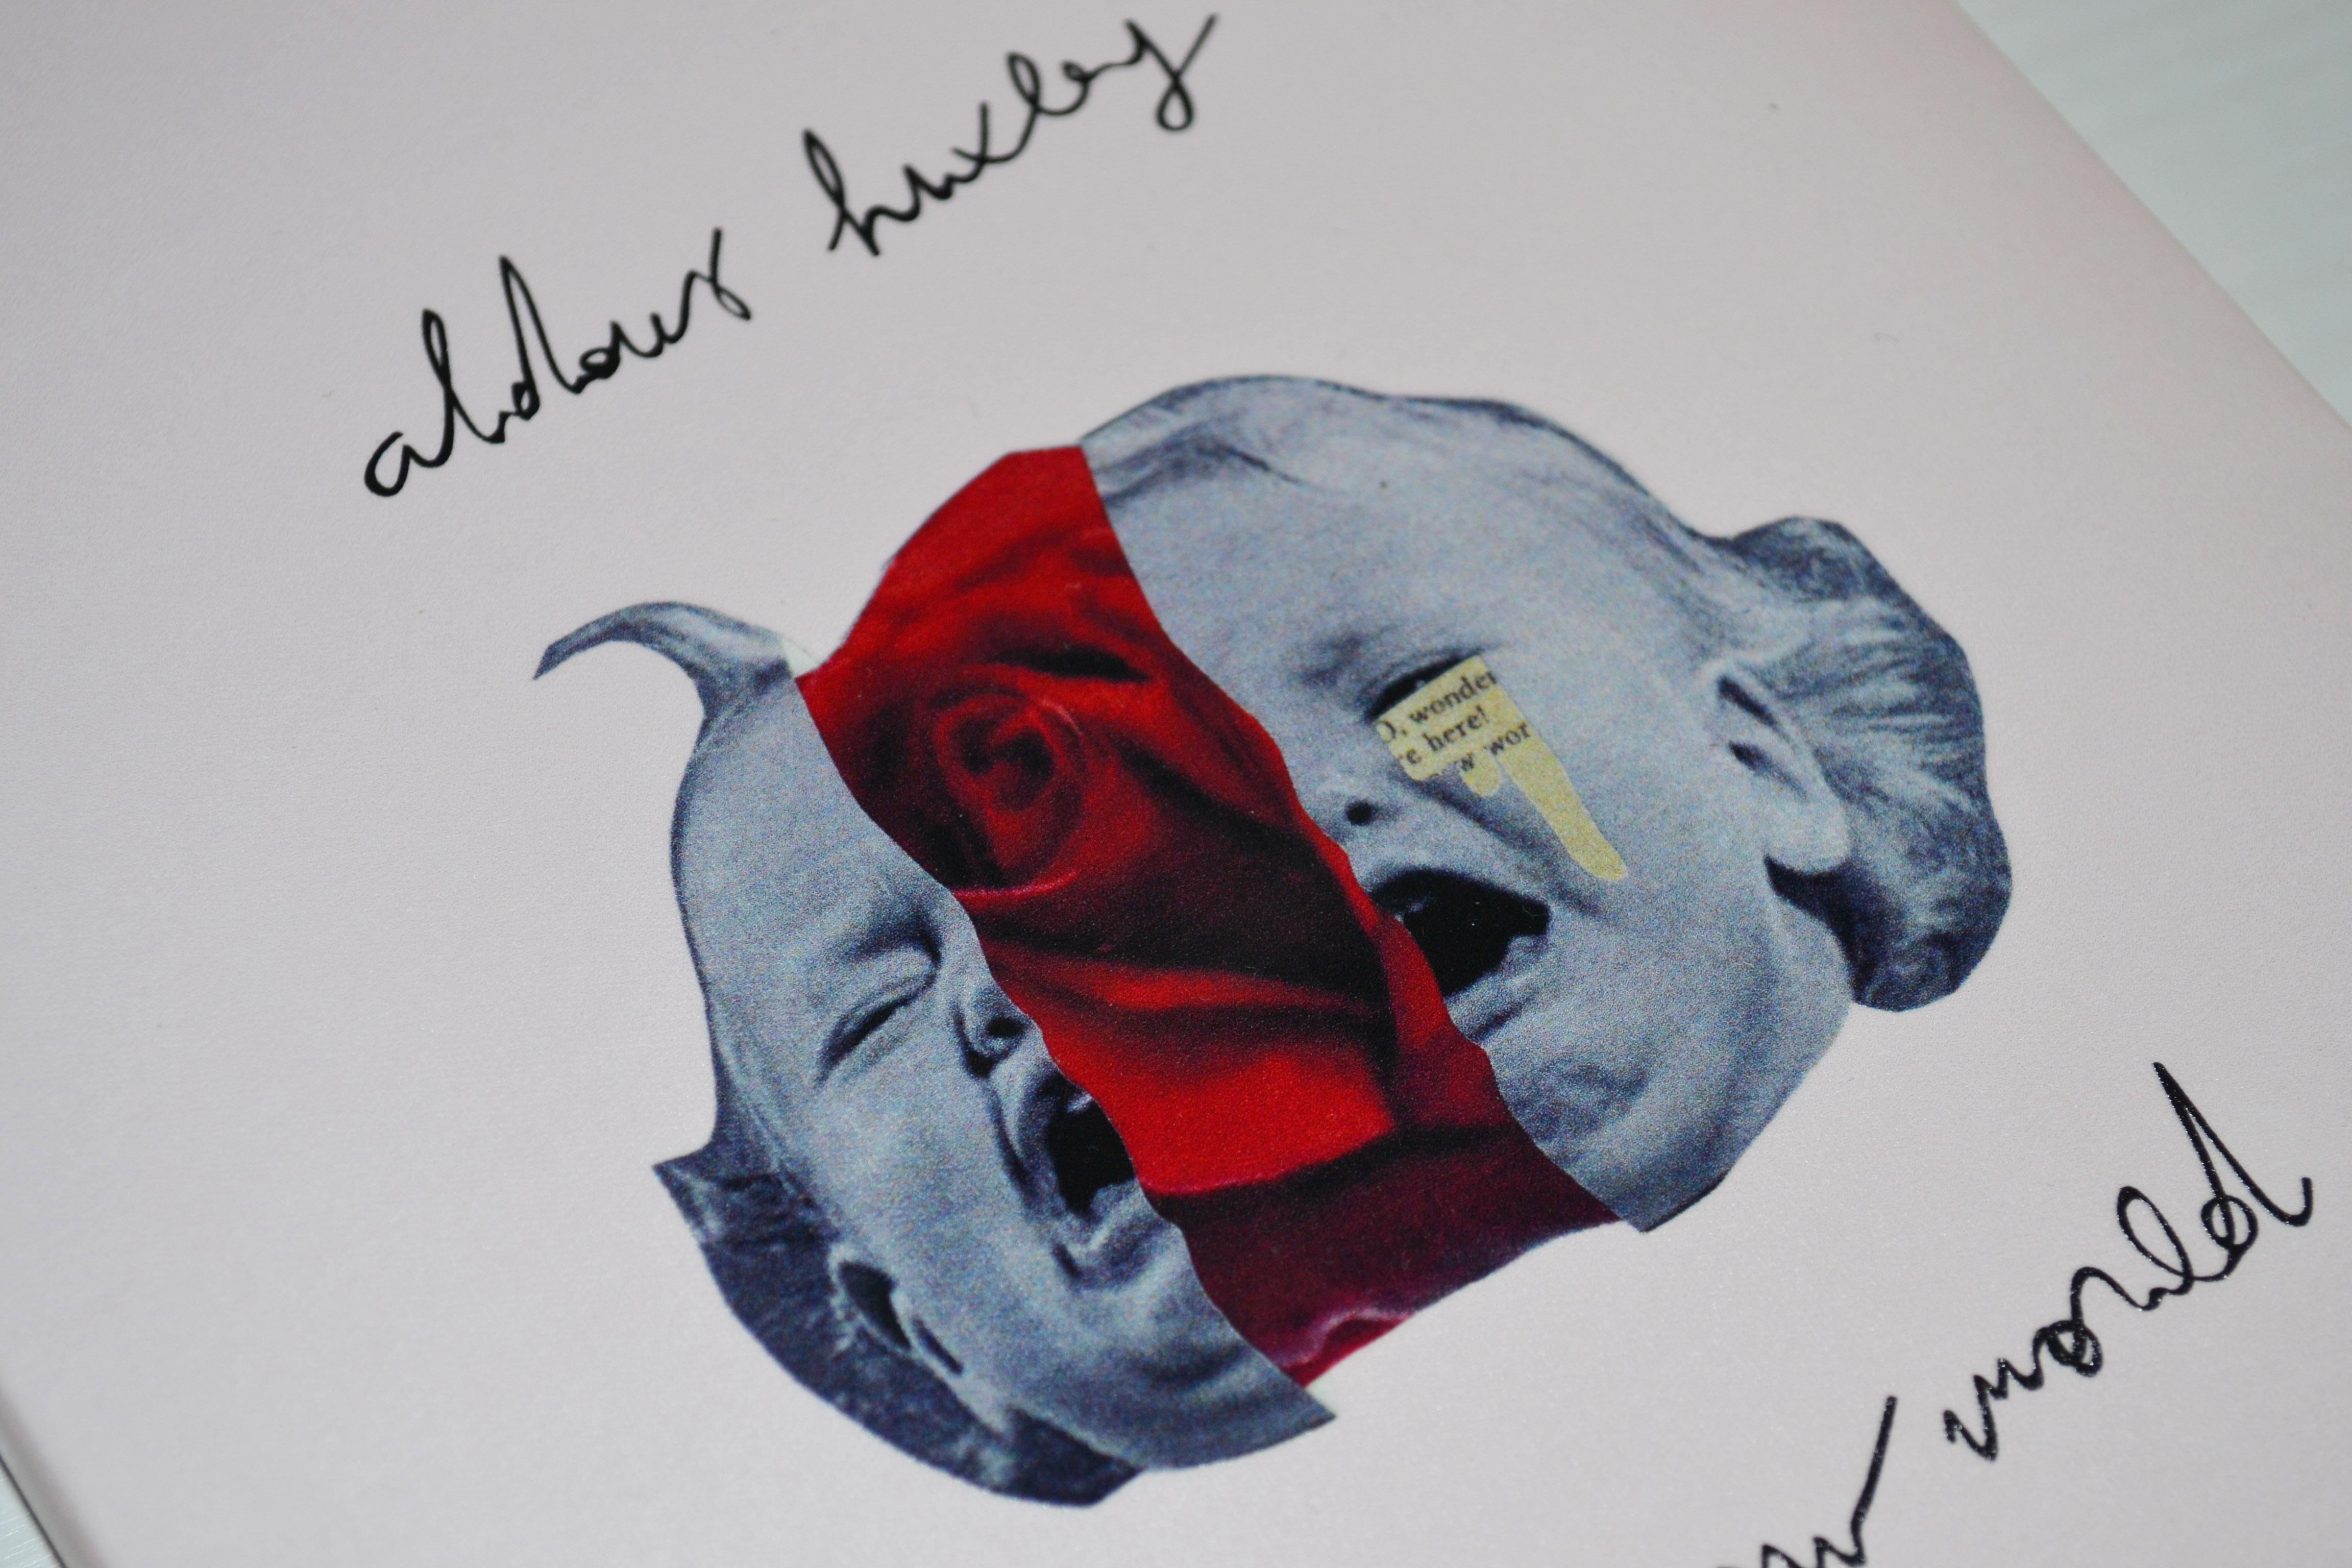 aldous huxley
O, wonder
e here!
w wor
world